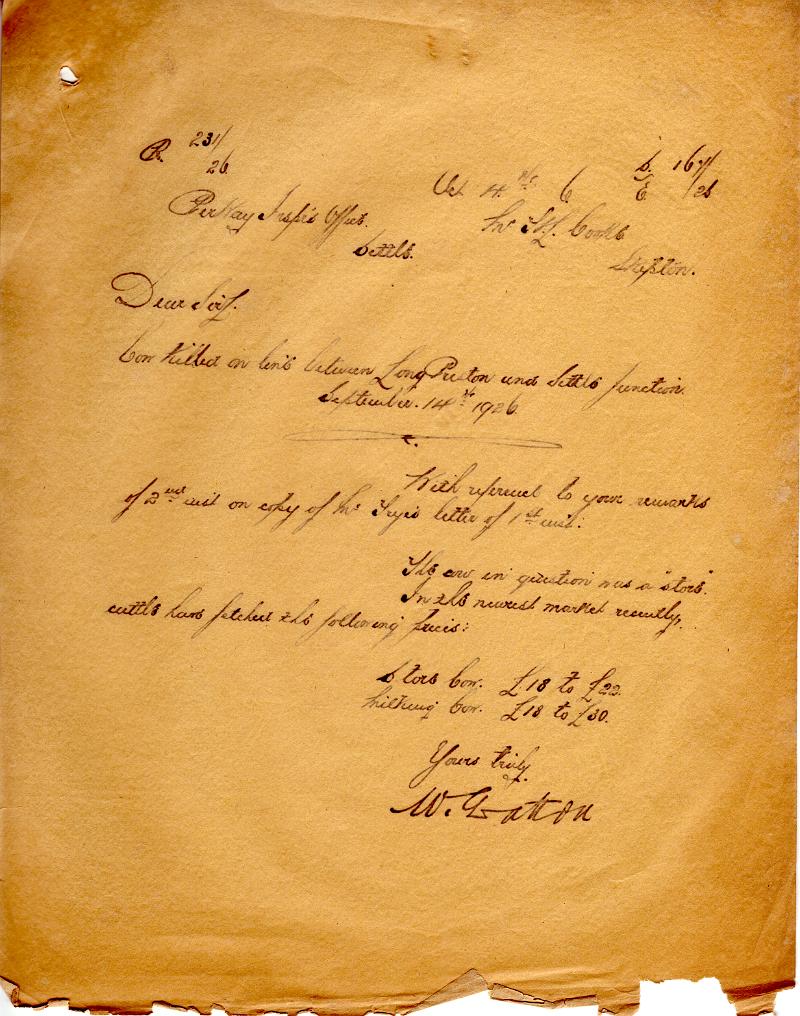 R. 231/26
S. E. 167/26
Oct 4th 6
Per Way Insp's Office. Mr
Settle. Skipton.
Dear Sir,
Cow killed on line between Long Preston and Settle Junction.
September. 14th 1926.
With reference to your remarks
of 2nd inst on copy of Mr letter of 1st inst:
The cow in question was a "store".
In the nearest market recently,
cattle have fetched the following prices:
Store Cow. £18 to £22.
Milking Cow. £18 to £30.
Yours truly,
W.